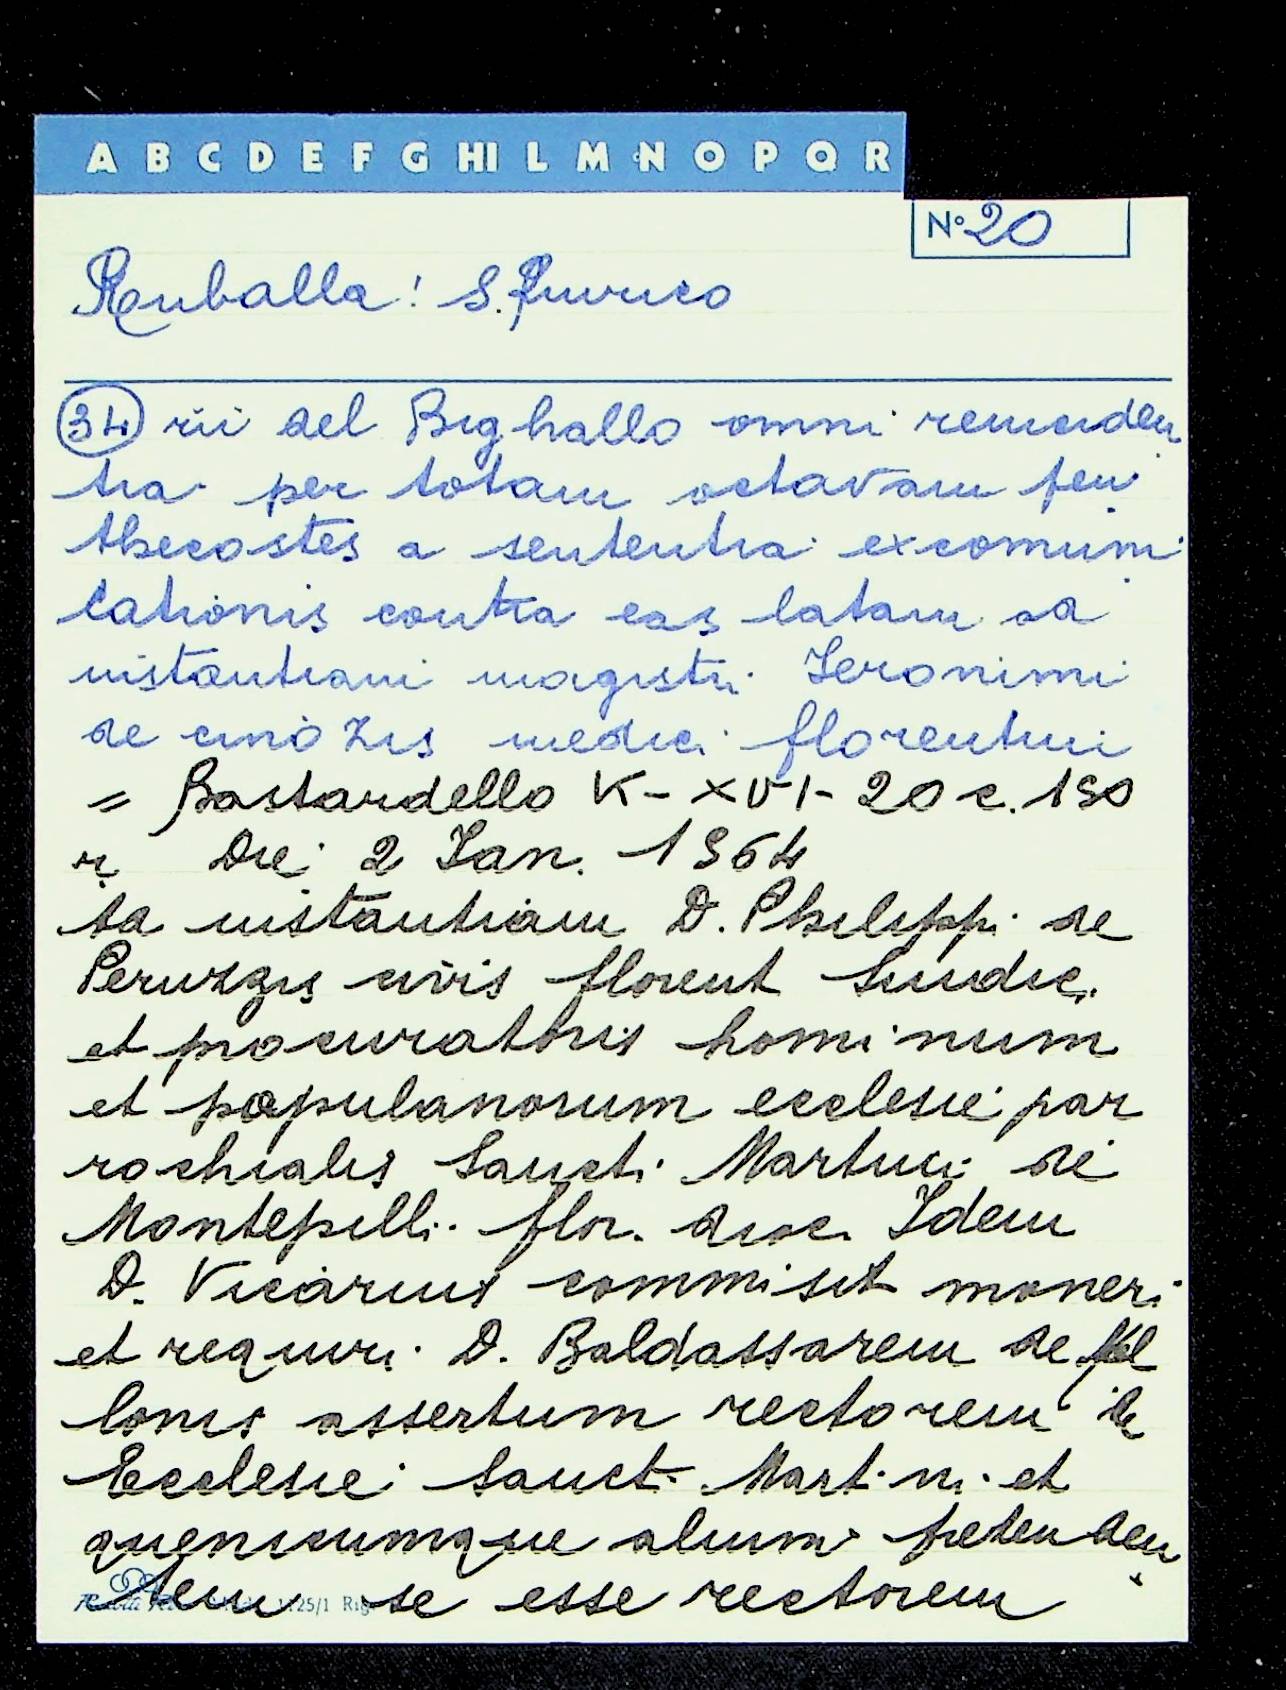 A B C D E F G HI L M N O P Q R
N° 20
Ruballa: S. Quirico
34 rii del Bighallo omni
tia per totam octavam pen
thecostes a sententia excomuni
cationis contra eos latam ad
instantiam magistri Ieronimi
de medici florentini
= Bastardello V - XVI - 20 c. 190
r. Die 2 Ian. 1564
ad instantiam D. Philippi de
Peruzzis civis florent Sindic.
et procuratoris hominum
et populanorum ecclesie par
rochialis Sancti Martini de
Montepilli flor. dioc. Idem
D. Vicarius commisit moneri
et requiri D. Baldassarem de
lonis assertum rectorem
Ecclesie Sancti Martini et
quemcumque alium preten den
tem se esse rectorem